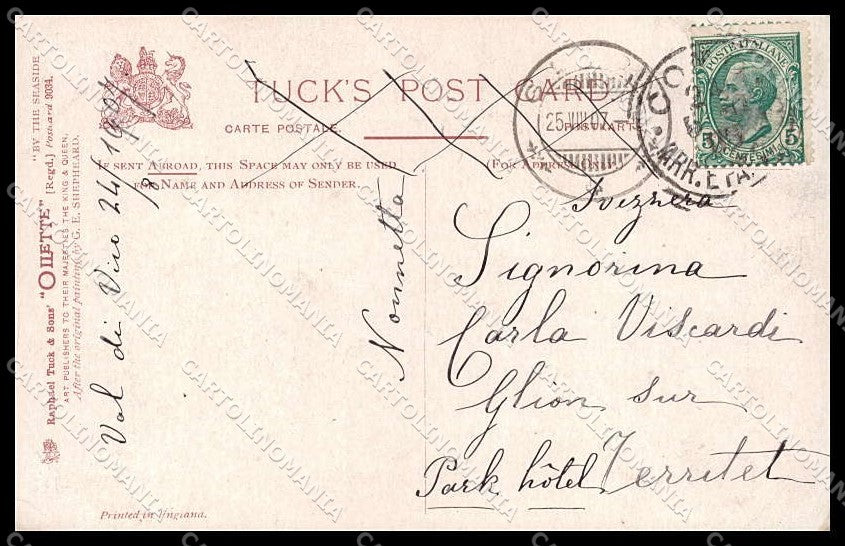 TUCK'S POST CARD
CARTE POSTALE.
POSTKARTE.
IF SENT ABROAD, THIS SPACE MAY ONLY BE USED
FOR NAME AND ADDRESS OF SENDER.
(FOR ADDRESS ONLY.)
"BY THE SEASIDE"
Raphael Tuck & Sons' "OILETTE" [Regd.] Postcard 9034.
ART PUBLISHERS TO THEIR MAJESTIES THE KING & QUEEN.
After the original painting by G. E. SHEPHEARD.
Printed in England.
Val di Vico 24/8 1907
Nonnetta
Svizzera
Signorina
Carla Viscardi
Glion sur
Territet
Park hôtel
25.VIII.07
COMO
ARR. E PAR.
POSTE ITALIANE
5 CENTESIMI 5
CARTOLINOMANIA